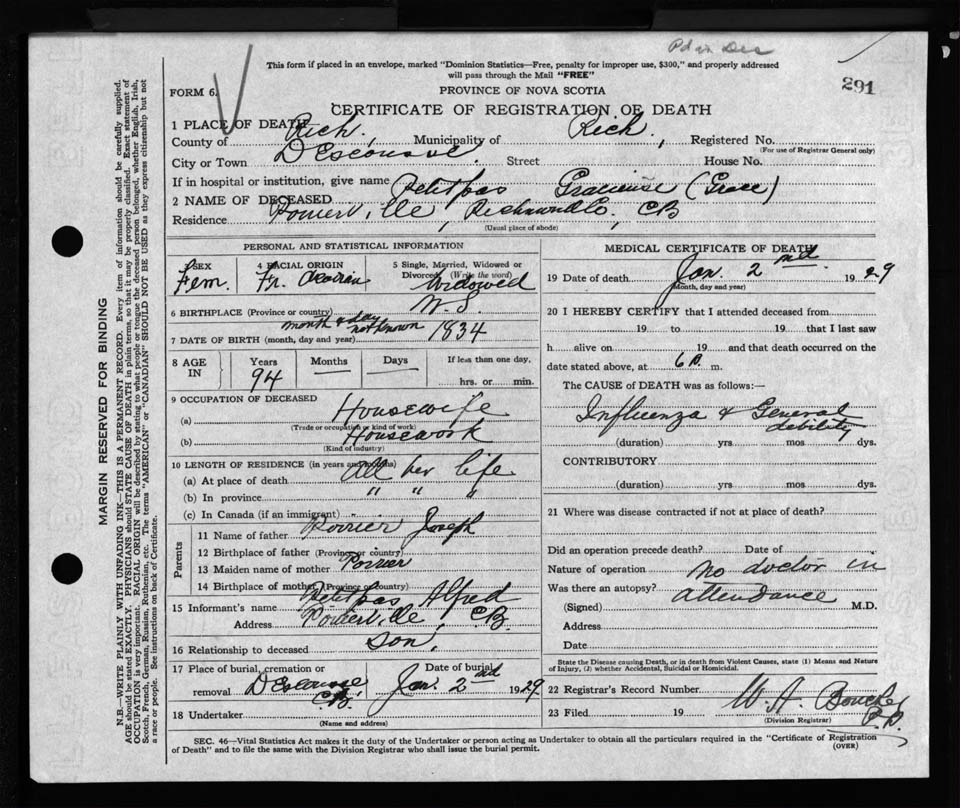 Pd in Dec
This form if placed in an envelope, marked "Dominion Statistics—Free, penalty for improper use, $300," and properly addressed
will pass through the Mail "FREE"
291
FORM 6.
PROVINCE OF NOVA SCOTIA
CERTIFICATE OF REGISTRATION OF DEATH
1 PLACE OF DEATH
County of Rich. , Municipality of Rich. , Registered No.
(For use of Registrar General only)
City or Town D'Escousse. Street House No.
If in hospital or institution, give name
2 NAME OF DECEASED Petitpas Gracieuse (Grace)
Residence Poirierville, Richmond Co., CB
(Usual place of abode)
PERSONAL AND STATISTICAL INFORMATION
3 SEX Fem.
4 RACIAL ORIGIN Fr. Acadian
5 Single, Married, Widowed or Divorced (Write the word) Widowed
6 BIRTHPLACE (Province or country) N.S.
7 DATE OF BIRTH (month, day and year) month & day not known 1834
8 AGE IN Years 94 Months Days If less than one day, hrs. or min.
9 OCCUPATION OF DECEASED
(a) Housewife
(Trade or occupation or kind of work)
(b) Housework
(Kind of industry)
10 LENGTH OF RESIDENCE (in years and months)
(a) At place of death All her life
(b) In province " " "
(c) In Canada (if an immigrant)
Parents
11 Name of father Poirier Joseph
12 Birthplace of father (Province or country)
13 Maiden name of mother Poirier
14 Birthplace of mother (Province or country)
15 Informant's name Petitpas Alfred
Address Poirierville, C.B.
16 Relationship to deceased son,
17 Place of burial, cremation or removal D'Escousse C.B. Date of burial Jan. 2nd 1929
18 Undertaker
(Name and address)
MEDICAL CERTIFICATE OF DEATH
19 Date of death Jan. 2nd 1929
(Month, day and year)
20 I HEREBY CERTIFY that I attended deceased from
19 to 19 that I last saw
h alive on 19 and that death occurred on the
date stated above, at 6 P. m.
The CAUSE of DEATH was as follows:—
Influenza & General debility
(duration) yrs. mos. dys.
CONTRIBUTORY
(duration) yrs. mos. dys.
21 Where was disease contracted if not at place of death?
Did an operation precede death? Date of
Nature of operation no doctor in
Was there an autopsy? attendance
(Signed) M.D.
Address
Date
State the Disease causing Death, or in death from Violent Causes, state (1) Means and Nature
of Injury, (2) whether Accidental, Suicidal or Homicidal.
22 Registrar's Record Number
23 Filed 19 W. A.
(Division Registrar)
SEC. 46—Vital Statistics Act makes it the duty of the Undertaker or person acting as Undertaker to obtain all the particulars required in the "Certificate of Registration
of Death" and to file the same with the Division Registrar who shall issue the burial permit.
(OVER)
MARGIN RESERVED FOR BINDING
N.B.—WRITE PLAINLY WITH UNFADING INK—THIS IS A PERMANENT RECORD. Every item of information should be carefully supplied.
AGE should be stated EXACTLY. PHYSICIANS should STATE CAUSE OF DEATH in plain terms, so that it may be properly classified. Exact statement of
OCCUPATION is very important. RACIAL ORIGIN will be described by stating to what people or tongue the deceased person belonged, whether English, Irish,
Scotch, French, German, Russian, Ruthenian, etc. The terms "AMERICAN" or "CANADIAN" SHOULD NOT BE USED as they express citizenship but not
a race or people. See instructions on back of Certificate.